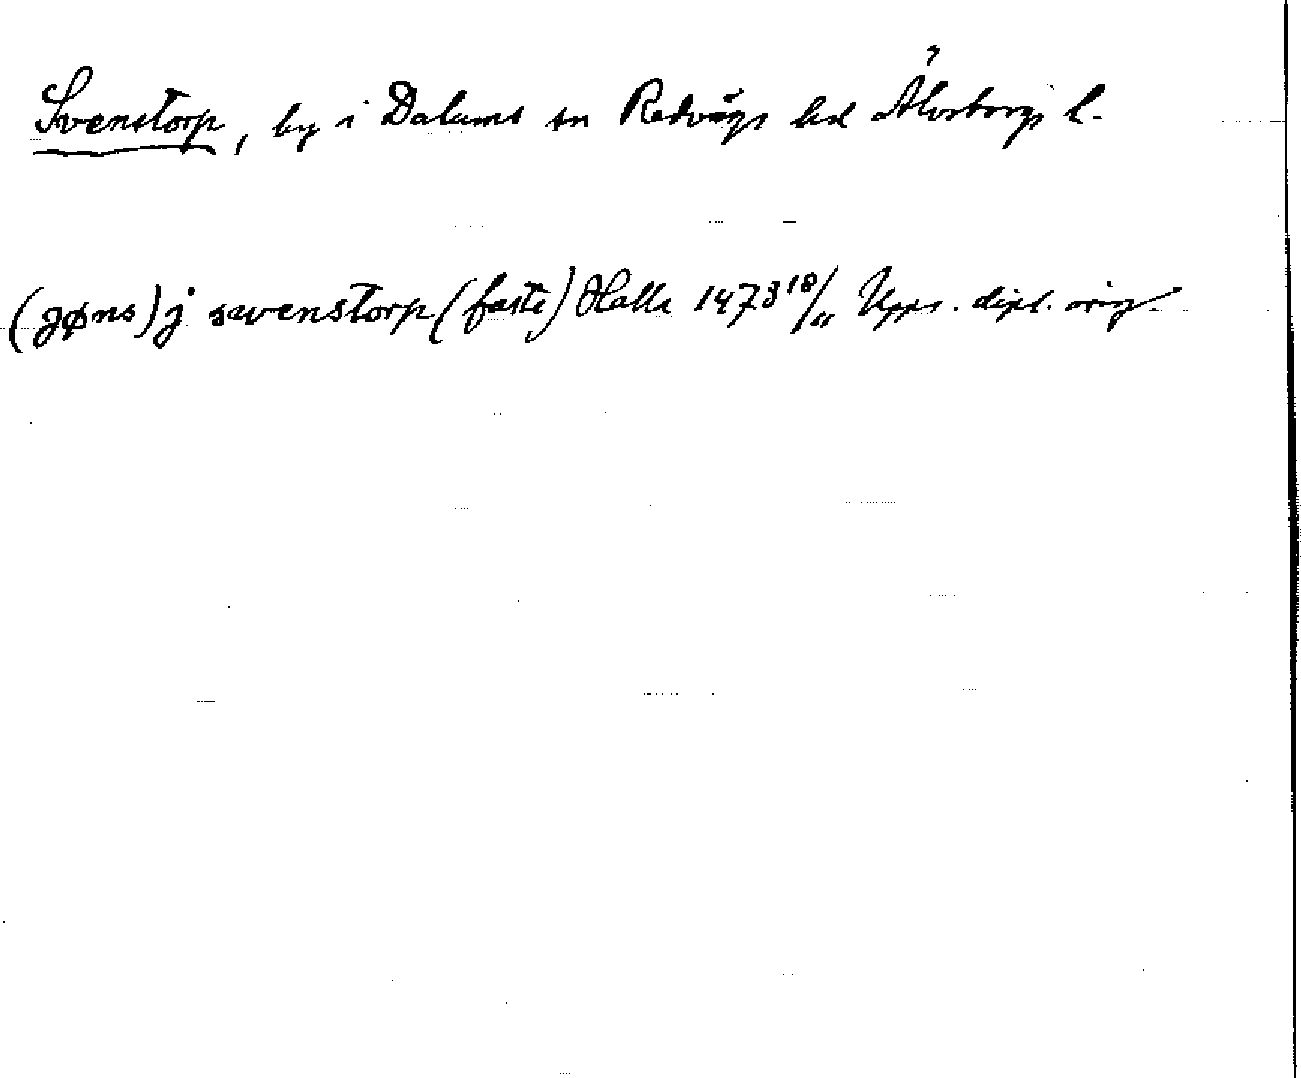 Svenstorp, by i Dalums sn Redvägs hd Älvsborgs l.
(jøns) j swenstorp (faste) Halla 1473 18/11 Upps. dipl. orig.